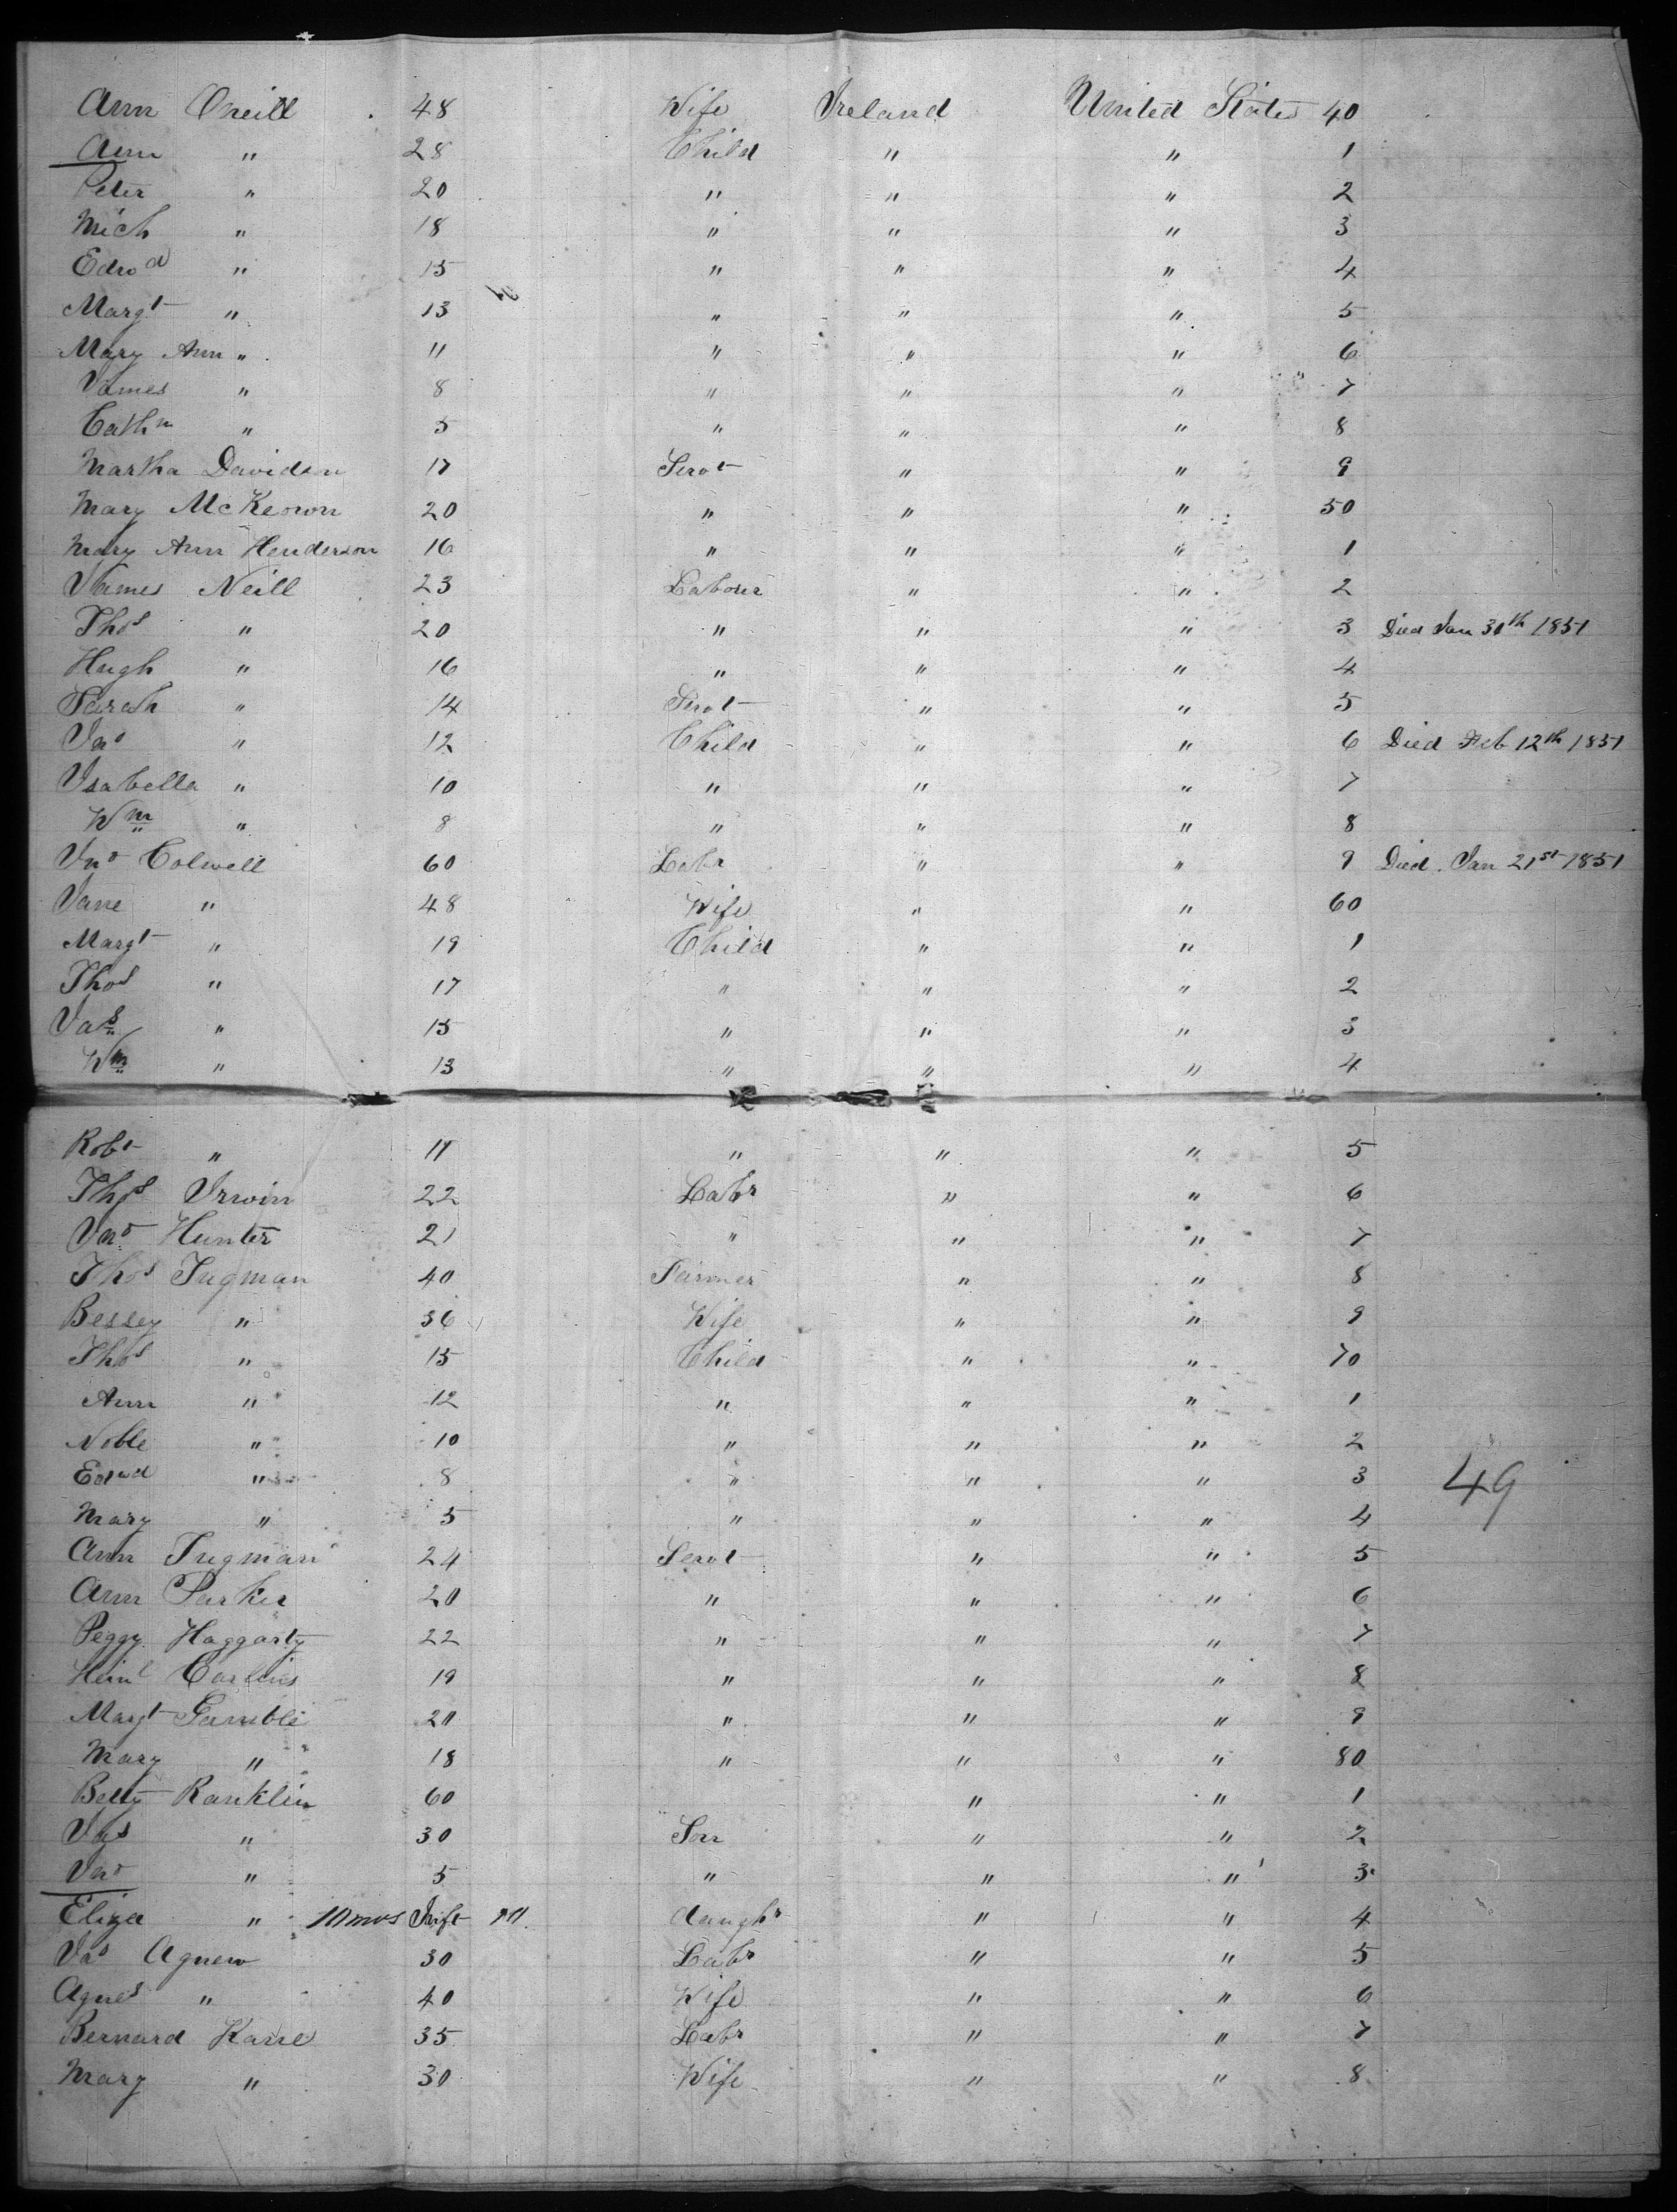 Ann Oneill . 48 Wife Ireland United States 40
Ann " 28 Child " " 1
Peter " 20 " " " 2
Mich " 18 " " " 3
Edwd " 15 " " " 4
Margt " 13 " " " 5
Mary Ann " 11 " " " 6
James " 8 " " " 7
Cathn " 5 " " " 8
Martha Davidson 17 Servt " " 9
Mary McKeown 20 " " " 50
Mary Ann Henderson 16 " " " 1
James Neill 23 Labour " " 2
Thos " 20 " " " 3 Died Jan 30th 1851
Hugh " 16 " " " 4
Sarah " 14 Servt " " 5
Jno " 12 Child " " 6 Died Feb 12th 1851
Isabella " 10 " " " 7
Wm " 8 " " " 8
Jno Colwell 60 Labr " " 9 Died. Jan 21st 1851
Jane " 48 Wife " " 60
Margt " 19 Child " " 1
Thos " 17 " " " 2
Jas " 15 " " " 3
Wm " 13 " " " 4
Robt " 11 " " " 5
Thos Irwin 22 Labr " " 6
Jno Hunter 21 " " " 7
Thos Tugman 40 Farmer " " 8
Bessey " 36 Wife " " 9
Thos " 15 Child " " 70
Ann " 12 " " " 1
Noble " 10 " " " 2
Edwd " 8 " " " 3
49
Mary " 5 " " " 4
Ann Tugman 24 Servt " " 5
Ann Parker 20 " " " 6
Peggy Haggarty 22 " " " 7
19 " " " 8
Margt Gamble 20 " " " 9
Mary " 18 " " " 80
Betty Ranklin 60 " " 1
Jas " 30 Son " " 2
Jno " 5 " " " 3
Eliza " 10 mos Inft daughr " " 4
Jas Agnew 30 Labr " " 5
Agnes " 40 Wife " " 6
Bernard Kane 35 Labr " " 7
Mary " 30 Wife " " 8